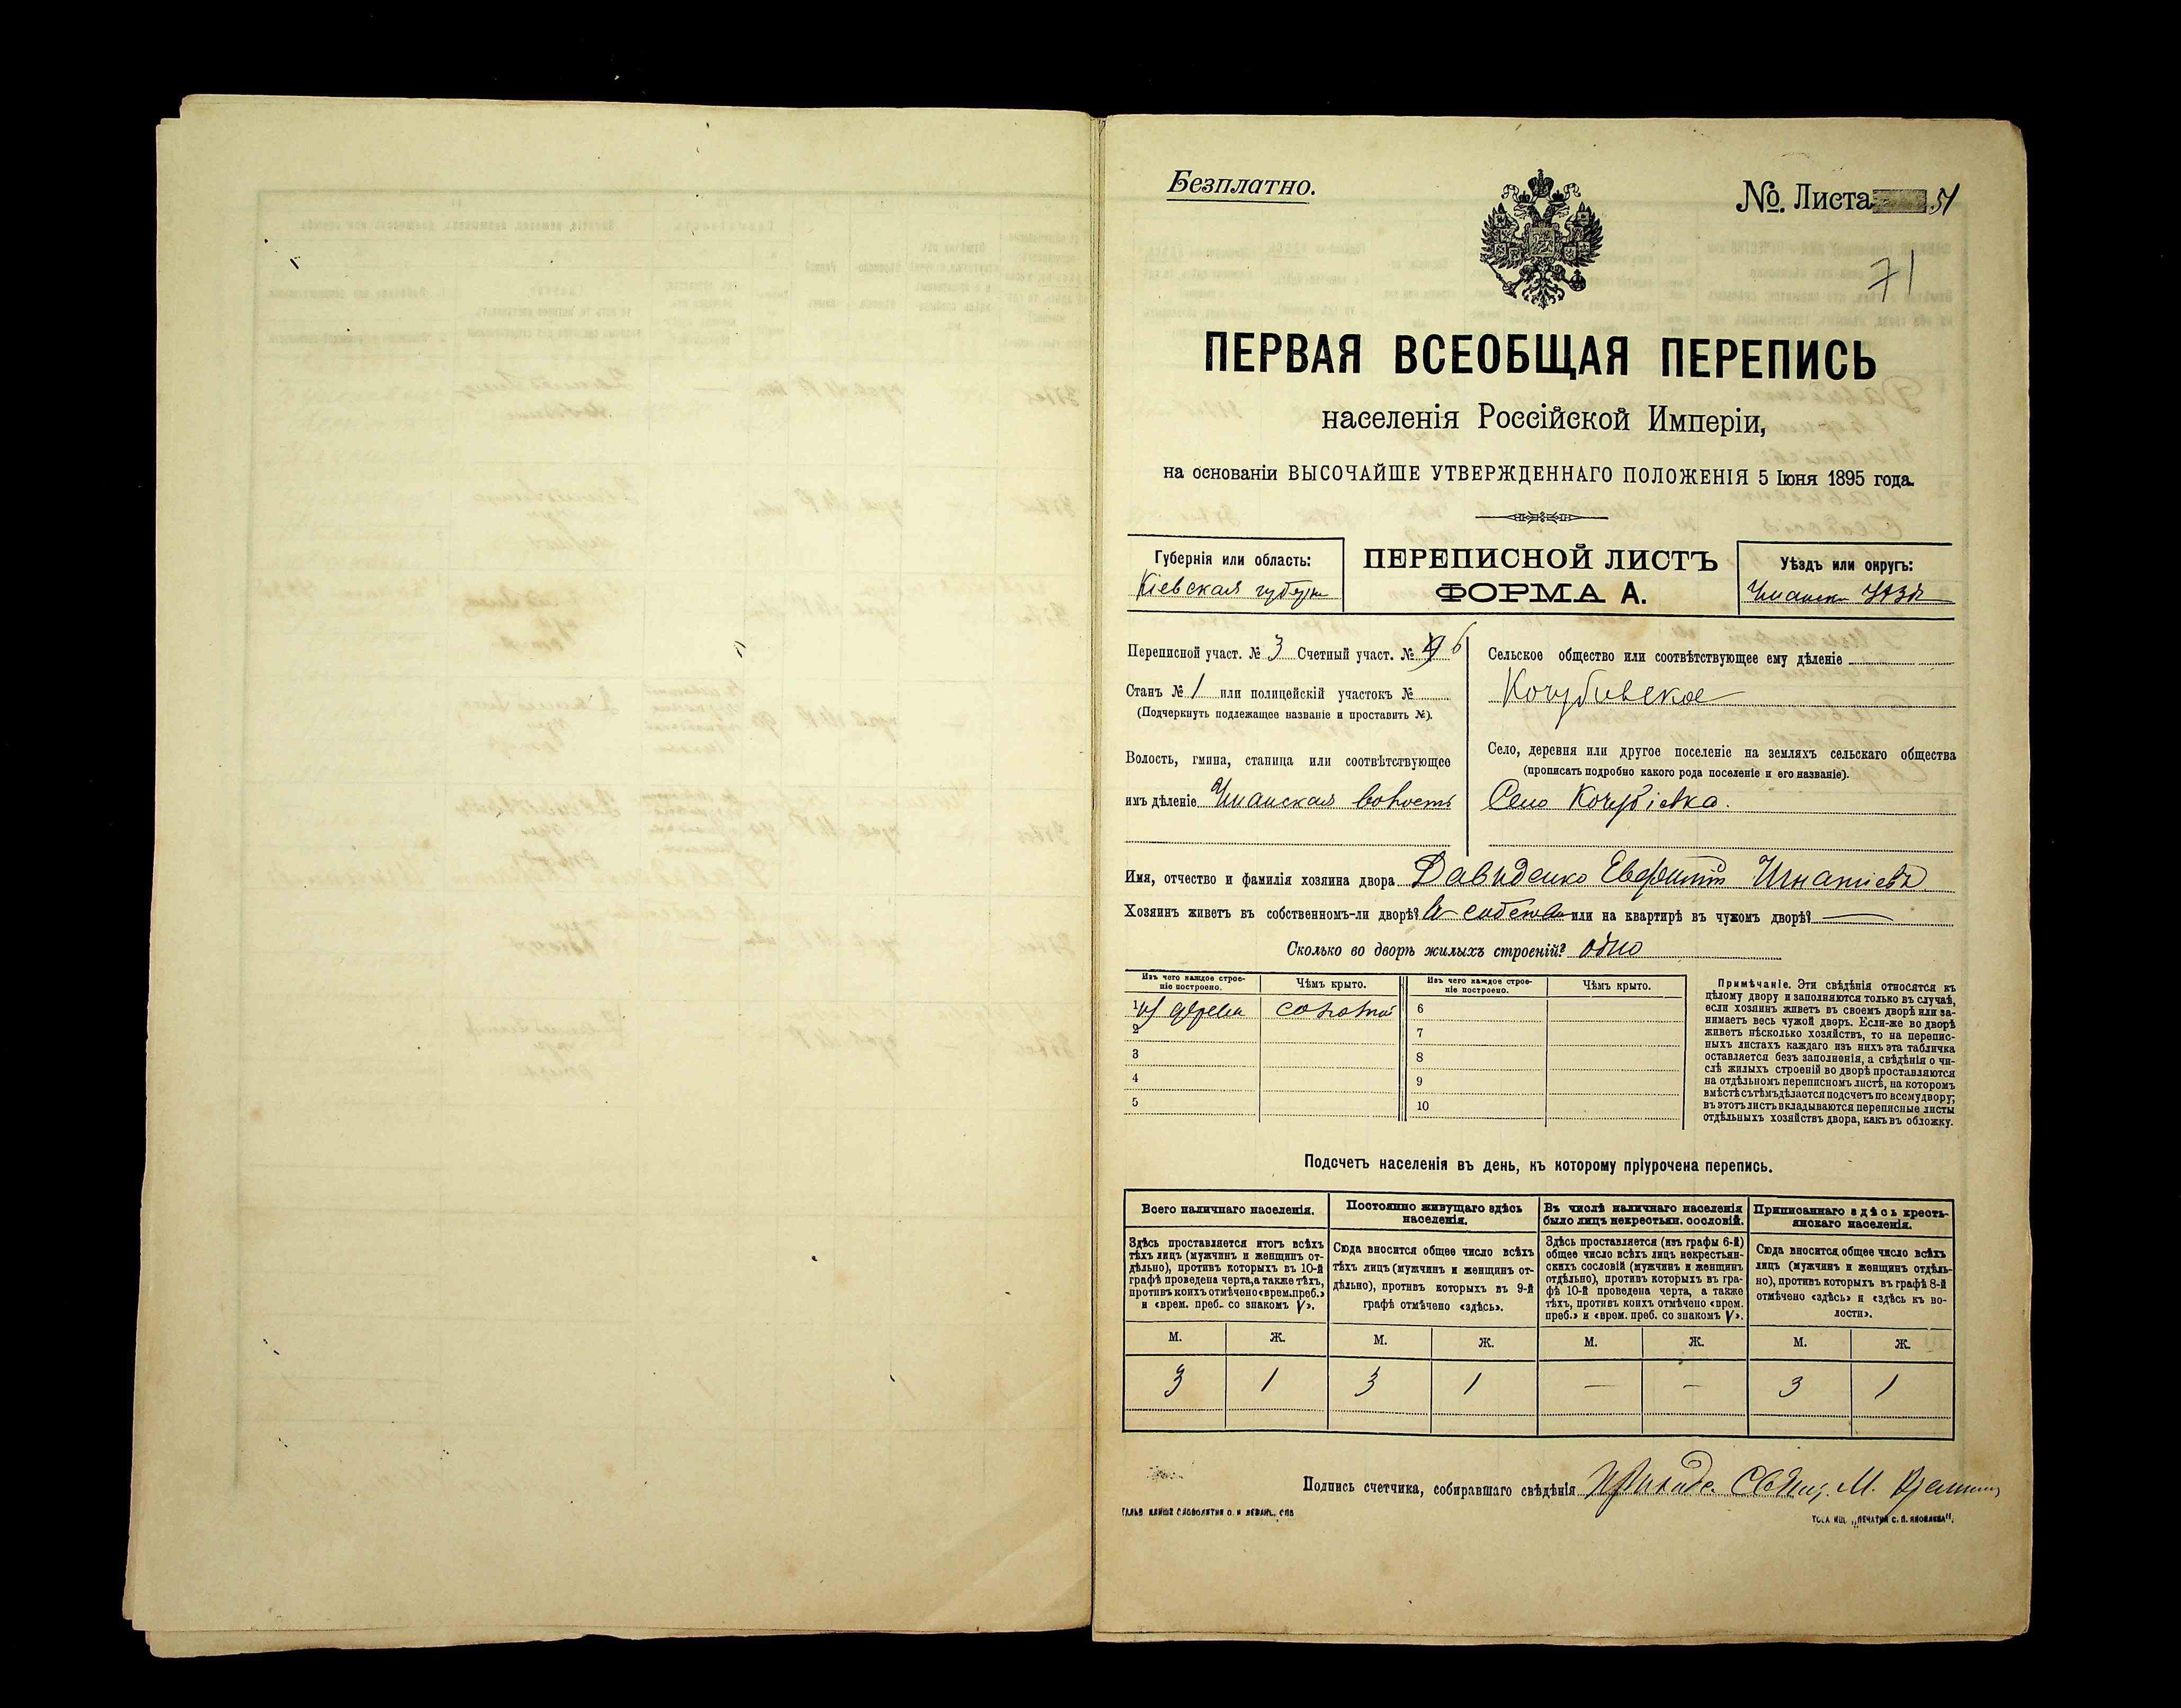 Безплатно.
№ Листа 51
71
ПЕРВАЯ ВСЕОБЩАЯ ПЕРЕПИСЬ
населенія Россійской Имперіи,
на основаніи ВЫСОЧАЙШЕ УТВЕРЖДЕННАГО ПОЛОЖЕНІЯ 5 Іюня 1895 года.
Губернія или область:
Кіевская
ПЕРЕПИСНОЙ ЛИСТЪ
ФОРМА А.
Уѣздъ или округъ:
Переписной участ. № 3 Счетный участ. № 6
Станъ № 1 или полицейскій участокъ №
(Подчеркнуть подлежащее названіе и проставить №).
Волость, гмина, станица или соотвѣтствующее
имъ дѣленіе Уманская волость
Сельское общество или соотвѣтствующее ему дѣленіе
Кочубивское
Село, деревня или другое поселеніе на земляхъ сельскаго общества
(прописать подробно какого рода поселеніе и его названіе).
Село Кочубіевка.
Имя, отчество и фамилія хозяина двора Давиденко Евфимій Игнатіевъ
Хозяинъ живетъ въ собственномъ-ли дворѣ? или на квартирѣ въ чужомъ дворѣ? —
Сколько во дворѣ жилыхъ строеній? одно
Изъ чего каждое строе-
ніе построено.
Чѣмъ крыто.
Изъ чего каждое строе-
ніе построено.
Чѣмъ крыто.
1 из дерева соломой
2
3
4
5
6
7
8
9
10
Примѣчаніе. Эти свѣдѣнія относятся къ
цѣлому двору и заполняются только въ случаѣ,
если хозяинъ живетъ въ своемъ дворѣ или за-
нимаетъ весь чужой дворъ. Если-же во дворѣ
живетъ нѣсколько хозяйствъ, то на перепис-
ныхъ листахъ каждаго изъ нихъ эта табличка
оставляется безъ заполненія, а свѣдѣнія о чи-
слѣ жилыхъ строеній во дворѣ проставляются
на отдѣльномъ переписномъ листѣ, на которомъ
вмѣстѣ съ тѣмъ дѣлается подсчетъ по всему двору;
въ этотъ листъ вкладываются переписные листы
отдѣльныхъ хозяйствъ двора, какъ въ обложку.
Подсчетъ населенія въ день, къ которому пріурочена перепись.
Всего наличнаго населенія.
Здѣсь проставляется итогъ всѣхъ
тѣхъ лицъ (мужчинъ и женщинъ от-
дѣльно), противъ которыхъ въ 10-й
графѣ проведена черта, а также тѣхъ,
противъ коихъ отмѣчено «врем. преб.»
и «врем. преб. со знакомъ V».
Постоянно живущаго здѣсь
населенія.
Сюда вносится общее число всѣхъ
тѣхъ лицъ (мужчинъ и женщинъ от-
дѣльно), противъ которыхъ въ 9-й
графѣ отмѣчено «здѣсь».
Въ числѣ наличнаго населенія
было лицъ некрестьян. сословій.
Здѣсь проставляется (изъ графы 6-й)
общее число всѣхъ лицъ некрестьян-
скихъ сословій (мужчинъ и женщинъ
отдѣльно), противъ которыхъ въ гра-
фѣ 10-й проведена черта, а также
тѣхъ, противъ коихъ отмѣчено «врем.
преб.» и «врем. преб. со знакомъ V».
Приписаннаго здѣсь кресть-
янскаго населенія.
Сюда вносится общее число всѣхъ
лицъ (мужчинъ и женщинъ отдѣль-
но), противъ которыхъ въ графѣ 8-й
отмѣчено «здѣсь» и «здѣсь къ во-
лости».
М. Ж. М. Ж. М. Ж. М. Ж.
3 1 3 1 — — 3 1
Подпись счетчика, собиравшаго свѣдѣнія